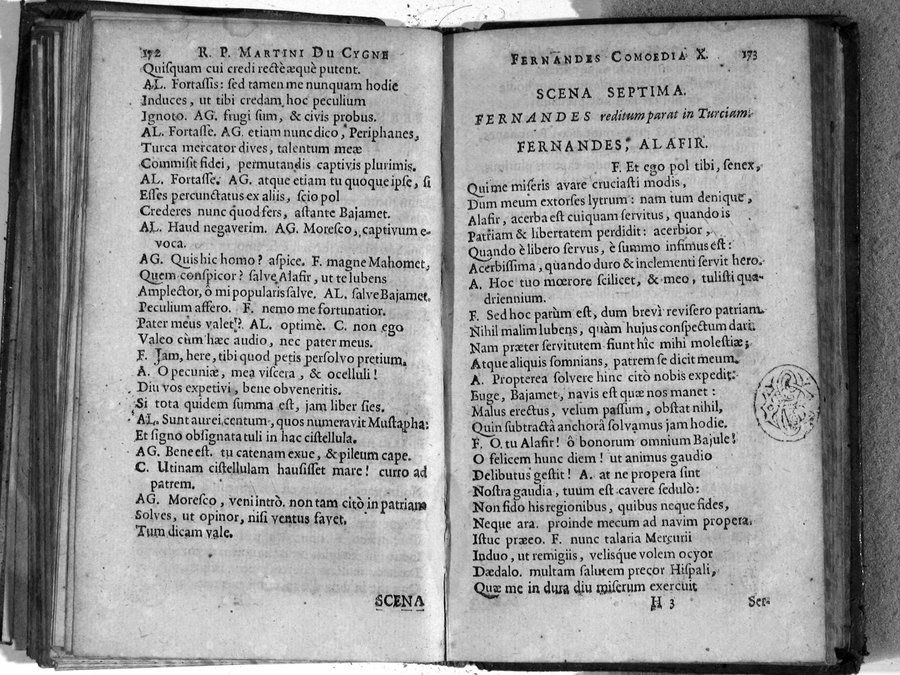 172 R. P. MARTINI DU CYGNE
Quiſquam cui credi rectè æquè putent.
AL. Fortaſſis: ſed tamen me nunquam hodie
Induces, ut tibi credam hoc peculium
Ignoto. AG. frugi ſum, & civis probus.
AL. Fortaſſe. AG. etiam nunc dico, Periphanes,
Turca mercator dives, talentum meæ
Commiſit fidei, permutandis captivis plurimis.
AL. Fortaſſe. AG. atque etiam tu quoque ipſe, ſi
Eſſes percunctatus ex aliis, ſcio pol
Crederes nunc quod fers, aſtante Bajamet.
AL. Haud negaverim. AG. Moreſco, captivum e-
voca.
AG. Quis hic homo? aſpice. F. magne Mahomet,
Quem conſpicor? ſalve Alafir, ut te lubens
Amplector, ô mi popularis ſalve. AL. ſalve Bajamet.
Peculium affero. F. nemo me fortunatior.
Pater meus valet? AL. optimè. C. non ego
Valeo cùm hæc audio, nec pater meus.
F. Jam, here, tibi quod petis perſolvo pretium.
A. O pecuniæ, mea viſcera, & ocelluli!
Diu vos expetivi, bene obveneritis.
Si tota quidem ſumma eſt, jam liber ſies.
AL. Sunt aurei centum, quos numeravit Muſtapha:
Et ſigno obſignata tuli in hac ciſtellula.
AG. Bene eſt. tu catenam exue, & pileum cape.
C. Utinam ciſtellulam hauſiſſet mare! curro ad
patrem.
AG. Moreſco, veni intrò. non tam citò in patriam
Solves, ut opinor, niſi ventus favet.
Tum dicam vale.
SCENA
FERNANDES COMOEDIA X. 173
SCENA SEPTIMA.
FERNANDES reditum parat in Turciam.
FERNANDES, ALAFIR.
F. Et ego pol tibi, ſenex,
Qui me miſeris avare cruciaſti modis,
Dum meum extorſes lytrum: nam tum denique,
Alafir, acerba eſt cuiquam ſervitus, quando is
Patriam & libertatem perdidit: acerbior,
Quando è libero ſervus, è ſummo infimus eſt:
Acerbiſſima, quando duro & inclementi ſervit hero.
A. Hoc tuo mœrore ſcilicet, & meo, tuliſti qua-
driennium.
F. Sed hoc parùm eſt, dum brevi reviſero patriam.
Nihil malim lubens, quàm hujus conſpectum dari.
Nam præter ſervitutem fiunt hîc mihi moleſtiæ;
Atque aliquis ſomnians, patrem ſe dicit meum.
A. Propterea ſolvere hinc citò nobis expedit.
Euge, Bajamet, navis eſt quæ nos manet:
Malus erectus, velum paſſum, obſtat nihil,
Quin ſubtractâ anchorâ ſolvamus jam hodie.
F. O tu Alafir! ô bonorum omnium Bajule!
O felicem hunc diem! ut animus gaudio
Delibutus geſtit! A. at ne propera ſint
Noſtra gaudia, tuum eſt cavere ſedulò:
Non fido his regionibus, quibus neque fides,
Neque ara. proinde mecum ad navim propera.
Iſtuc præeo. F. nunc talaria Mercurii
Induo, ut remigiis, veliſque volem ocyor
Dædalo. multam ſalutem precor Hiſpali,
Quæ me in dura diu miſerum exercuit
H 3 Ser-